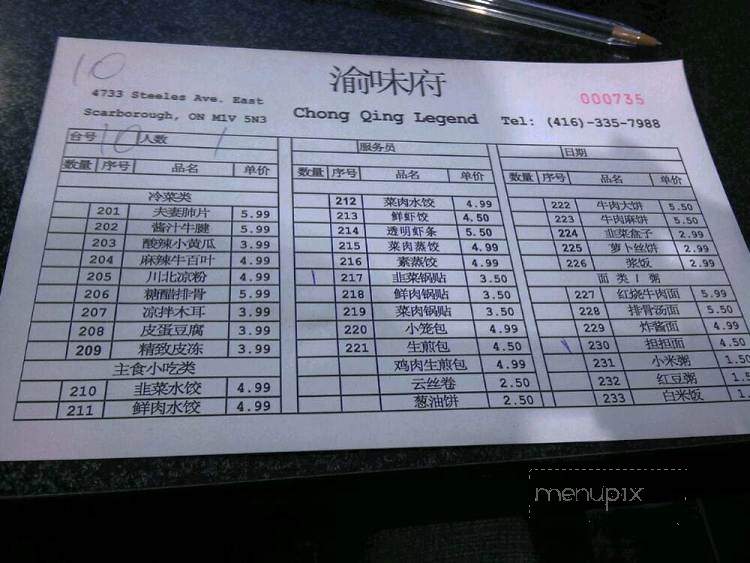 10
渝味府
000735
4733 Steeles Ave. East
Scarborough, ON M1V 5N3
Chong Qing Legend
Tel: (416)-335-7988
台号 10 人数 1
服务员
日期
数量 序号 品名 单价
冷菜类
201 夫妻肺片 5.99
202 酱汁牛腱 5.99
203 酸辣小黄瓜 3.99
204 麻辣牛百叶 4.99
205 川北凉粉 4.99
206 糖醋排骨 5.99
207 凉拌木耳 3.99
208 皮蛋豆腐 3.99
209 精致皮冻 3.99
主食小吃类
210 韭菜水饺 4.99
211 鲜肉水饺 4.99
数量 序号 品名 单价
212 菜肉水饺 4.99
213 鲜虾饺 4.50
214 透明虾条 5.50
215 菜肉蒸饺 4.99
216 素蒸饺 4.99
217 韭菜锅贴 3.50
218 鲜肉锅贴 3.50
219 菜肉锅贴 3.50
220 小笼包 4.99
221 生煎包 4.50
鸡肉生煎包 4.99
云丝卷 2.50
葱油饼 2.50
数量 序号 品名 单价
222 牛肉大饼 5.50
223 牛肉麻饼 5.50
224 韭菜盒子 2.99
225 萝卜丝饼 2.99
226 浆饭 2.99
面 类 / 粥
227 红烧牛肉面 5.99
228 排骨汤面 5.50
229 炸酱面 4.99
230 担担面 4.50
231 小米粥 1.50
232 红豆粥 1.
233 白米饭 1.
menupix